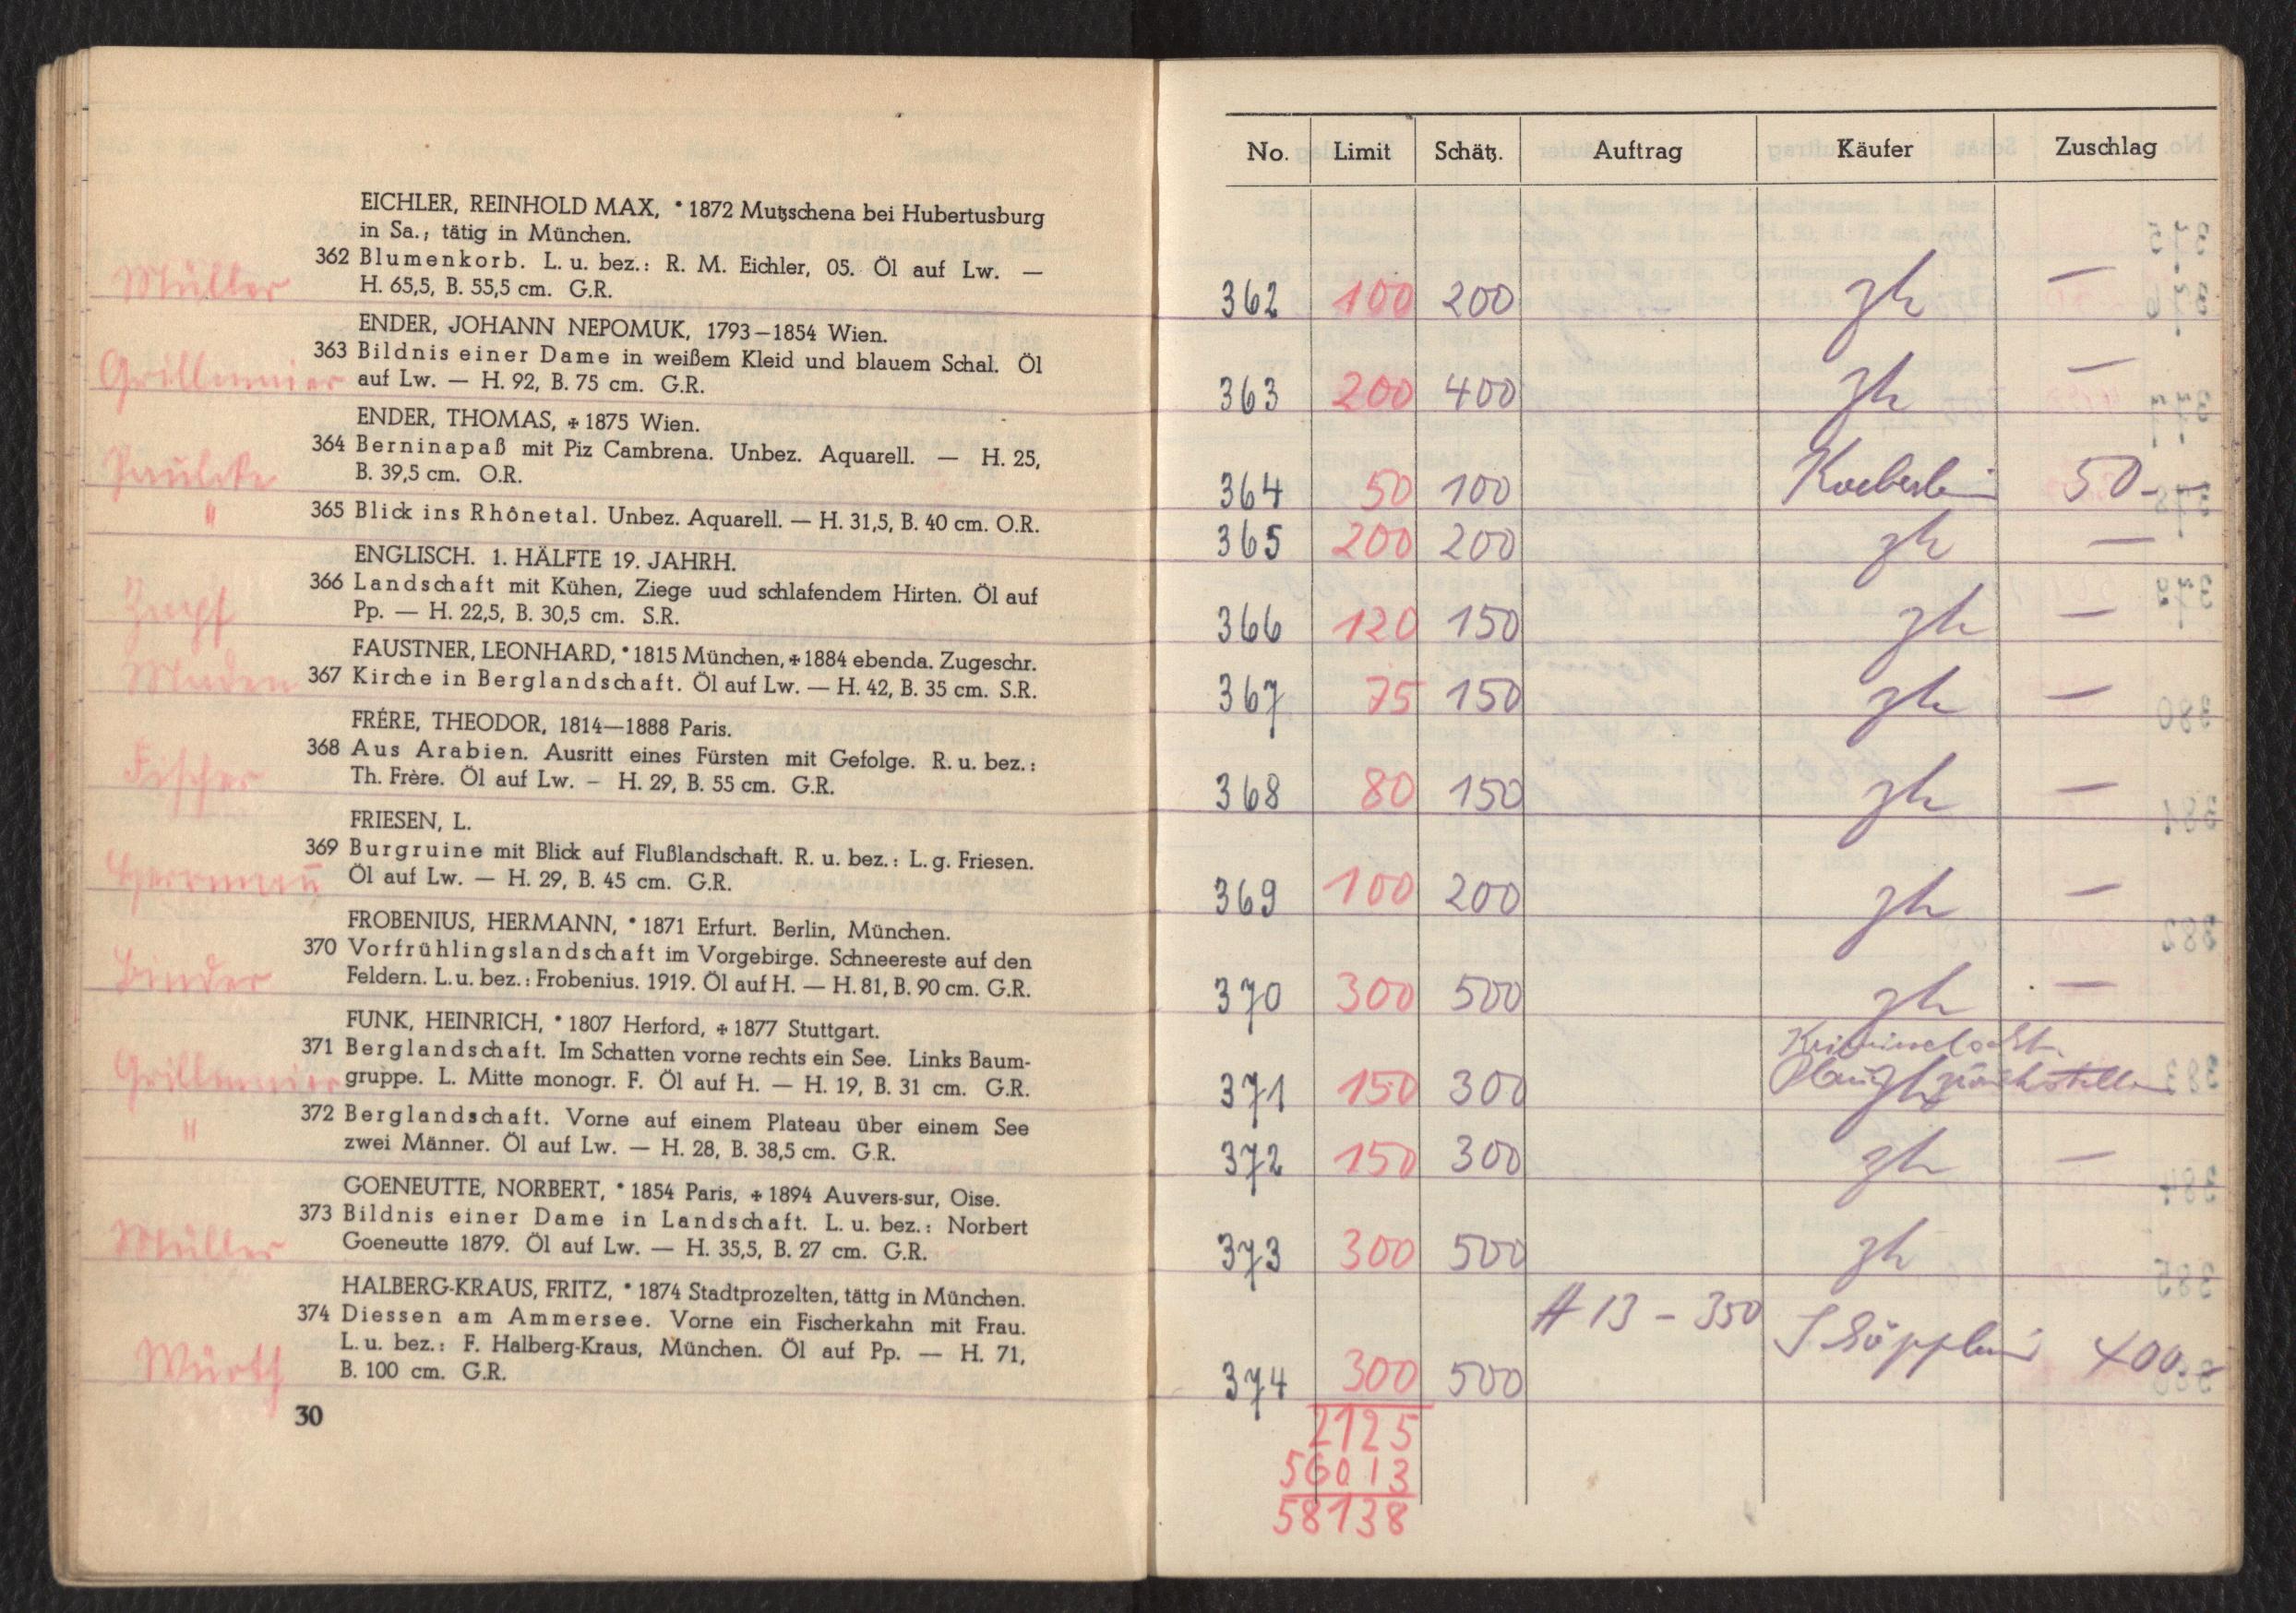 EICHLER, REINHOLD MAX, * 1872 Mutzschena bei Hubertusburg
in Sa.; tätig in München.
362 Blumenkorb. L. u. bez.: R. M. Eichler, 05. Öl auf Lw. —
Müller
H. 65,5, B. 55,5 cm. G.R.
ENDER, JOHANN NEPOMUK, 1793–1854 Wien.
363 Bildnis einer Dame in weißem Kleid und blauem Schal. Öl
Grillmaier auf Lw. — H. 92, B. 75 cm. G.R.
ENDER, THOMAS, + 1875 Wien.
364 Berninapaß mit Piz Cambrena. Unbez. Aquarell. — H. 25,
B. 39,5 cm. O.R.
" 365 Blick ins Rhônetal. Unbez. Aquarell. — H. 31,5, B. 40 cm. O.R.
ENGLISCH. 1. HÄLFTE 19. JAHRH.
366 Landschaft mit Kühen, Ziege uud schlafendem Hirten. Öl auf
Zapf Pp. — H. 22,5, B. 30,5 cm. S.R.
FAUSTNER, LEONHARD, * 1815 München, + 1884 ebenda. Zugeschr.
367 Kirche in Berglandschaft. Öl auf Lw. — H. 42, B. 35 cm. S.R.
FRÉRE, THEODOR, 1814—1888 Paris.
368 Aus Arabien. Ausritt eines Fürsten mit Gefolge. R. u. bez.:
Fischer Th. Frère. Öl auf Lw. – H. 29, B. 55 cm. G.R.
FRIESEN, L.
369 Burgruine mit Blick auf Flußlandschaft. R. u. bez.: L. g. Friesen.
Herrmann Öl auf Lw. — H. 29, B. 45 cm. G.R.
FROBENIUS, HERMANN, * 1871 Erfurt. Berlin, München.
370 Vorfrühlingslandschaft im Vorgebirge. Schneereste auf den
Binder Feldern. L. u. bez.: Frobenius. 1919. Öl auf H. — H. 81, B. 90 cm. G.R.
FUNK, HEINRICH, * 1807 Herford, + 1877 Stuttgart.
371 Berglandschaft. Im Schatten vorne rechts ein See. Links Baum-
Grillmaier gruppe. L. Mitte monogr. F. Öl auf H. — H. 19, B. 31 cm. G.R.
372 Berglandschaft. Vorne auf einem Plateau über einem See
" zwei Männer. Öl auf Lw. — H. 28, B. 38,5 cm. G.R.
GOENEUTTE, NORBERT, * 1854 Paris, + 1894 Auvers-sur, Oise.
373 Bildnis einer Dame in Landschaft. L. u. bez.: Norbert
Müller Goeneutte 1879. Öl auf Lw. — H. 35,5, B. 27 cm. G.R.
HALBERG-KRAUS, FRITZ, * 1874 Stadtprozelten, tättg in München.
374 Diessen am Ammersee. Vorne ein Fischerkahn mit Frau.
L. u. bez.: F. Halberg-Kraus, München. Öl auf Pp. — H. 71,
Würth B. 100 cm. G.R.
30
No. Limit Schätz. Auftrag Käufer Zuschlag
362 100 200 zh —
363 200 400 zh —
364 50 100 50.-
365 200 200 zh —
366 120 150 zh —
367 75 150 zh —
368 80 150 zh —
369 100 200 zh —
370 300 500 zh —
371 150 300 zh
372 150 300 zh —
373 300 500 zh
A 13 – 350
374 300 500 400.-
2125
56013
58138